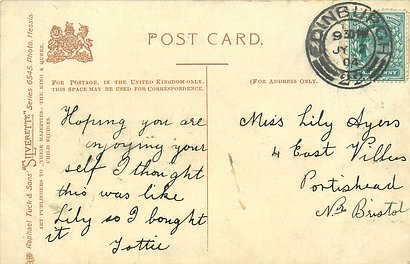 POST CARD.
FOR POSTAGE, IN THE UNITED KINGDOM ONLY,
THIS SPACE MAY BE USED FOR CORRESPONDENCE.
(FOR ADDRESS ONLY.)
EDINBURGH
JY
04
Raphael Tuck & Sons' "SILVERETTE" Series 6545. Photo, Messia.
ART PUBLISHERS TO THEIR MAJESTIES THE KING & QUEEN.
CHILD STUDIES
Hoping you are
enjoying your
self I thought
this was like
Lily so I bought
it Tottie
Miss Lily Ayers
4 East Villas
Portishead
Nr Bristol